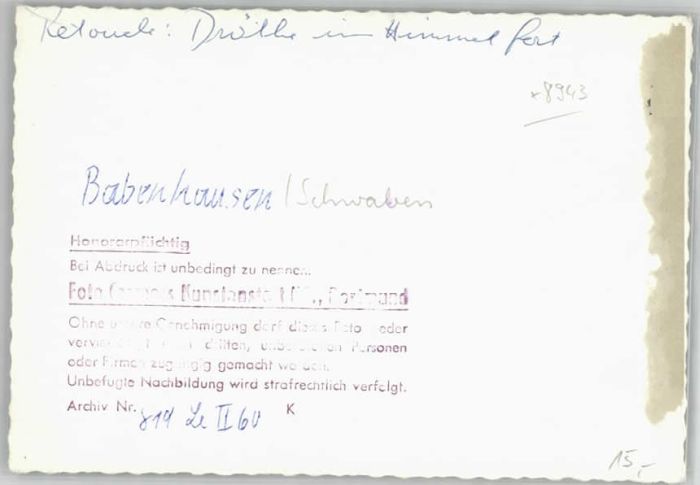 Retouche: Drähte im Himmel fort
*8943
Babenhausen /Schwaben
Honorarpflichtig
Bei Abdruck ist unbedingt zu nennen..
Foto Kunstanstalt Dortmund
Ohne unsere Genehmigung darf dieses Foto oder
dritten, Personen
oder Firmen zugängig gemacht werden.
Unbefugte Nachbildung wird strafrechtlich verfolgt.
Archiv Nr. 819 Le II 60 K
15,-